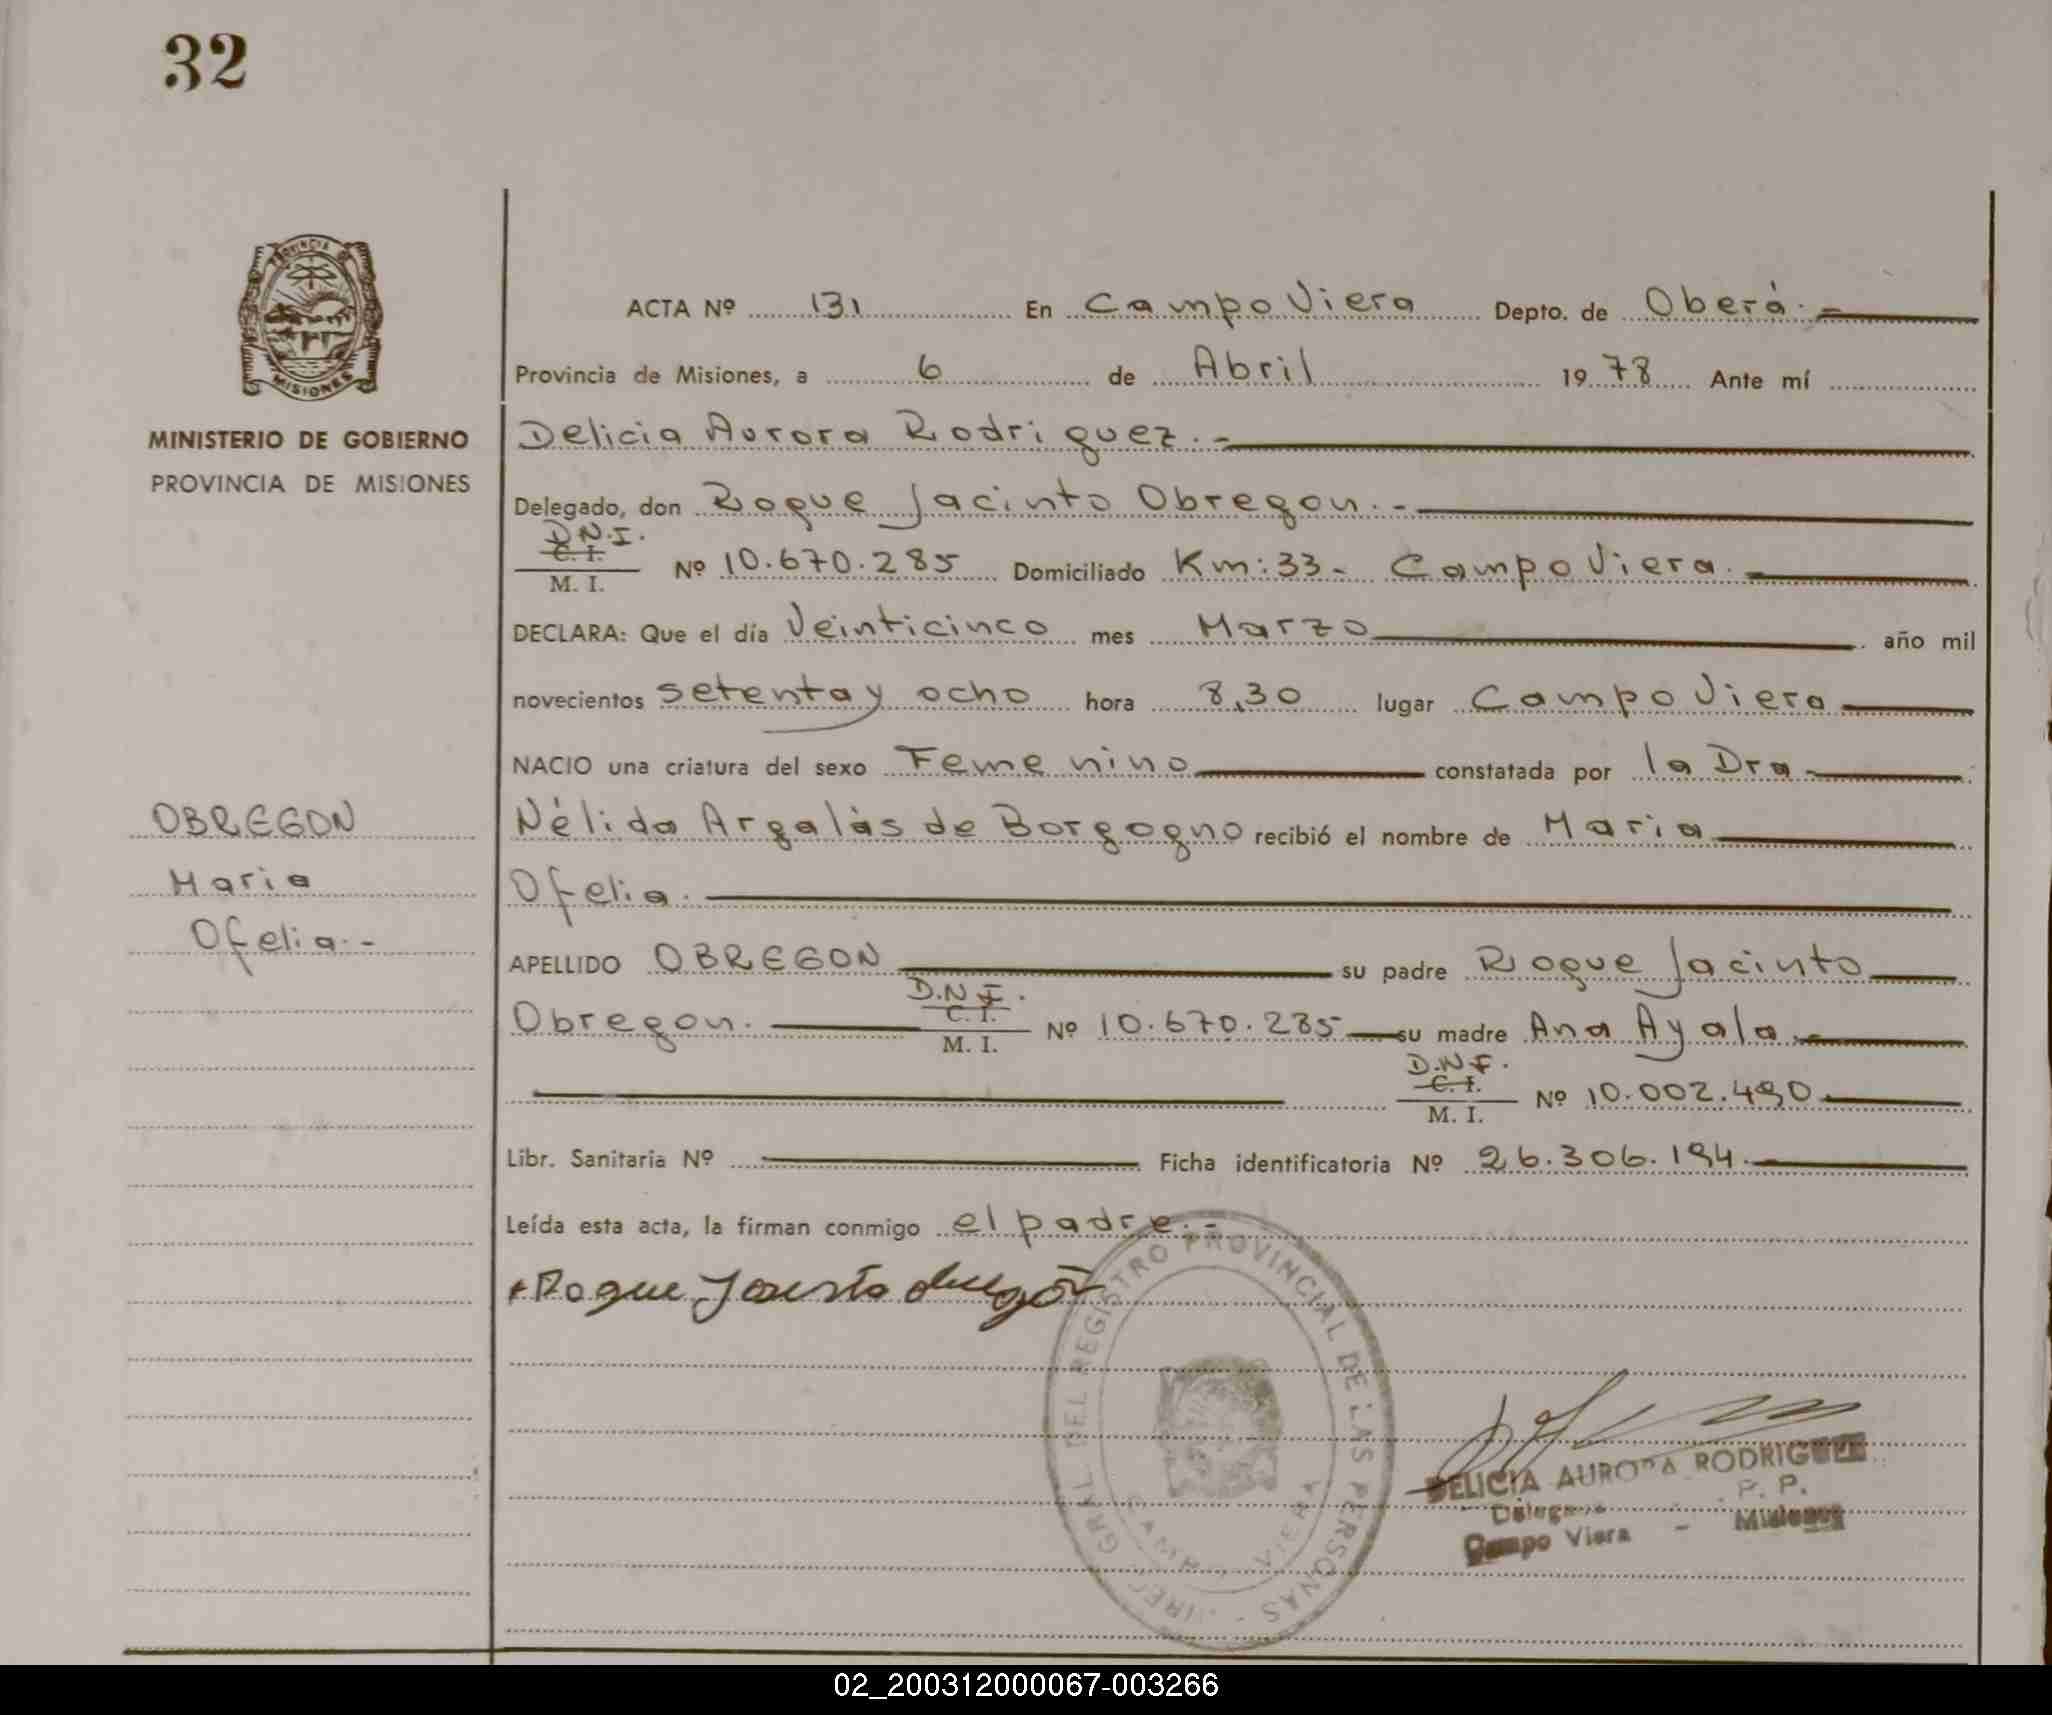 32
PROVINCIA
MISIONES
MINISTERIO DE GOBIERNO
PROVINCIA DE MISIONES
ACTA Nº 131 En Campo Viera Depto. de Oberá.-
Provincia de Misiones, a 6 de Abril 1978 Ante mí
Delicia Aurora Rodriguez.-
Delegado, don Roque Jacinto Obregon.-
D.N.I.
C. I.
M. I. Nº 10.670.285 Domiciliado Km: 33- Campo Viera.-
DECLARA: Que el día Veinticinco mes Marzo año mil
novecientos setenta y ocho hora 8,30 lugar Campo Viera
NACIO una criatura del sexo Femenino constatada por la Dra
Nélida Argalás de Borgogno recibió el nombre de Maria
Ofelia.
OBREGON
Maria
Ofelia.-
APELLIDO OBREGON su padre Roque Jacinto
Obregon. D.N.I. C. I. M. I. Nº 10.670.285 su madre Ana Ayala.-
D.N.I. C. I. M. I. Nº 10.002.490
Libr. Sanitaria Nº Ficha identificatoria Nº 26.306.194.-
Leída esta acta, la firman conmigo el padre.-
Roque Jacinto
GRAL. DEL REGISTRO PROVINCIAL DE LAS PERSONAS
DELICIA AURORA RODRIGUEZ
P. P.
Campo Viera - Misiones
02_200312000067-003266